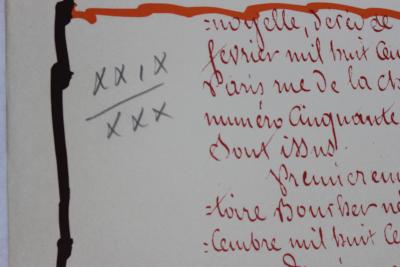 XXIX
XXX
=noyelle, décédé
février mil huit cen
Paris rue de la Ch
numéro Cinquante
Dont issus.
Premièrem
=toire Boucher né
=cembre mil huit Ce